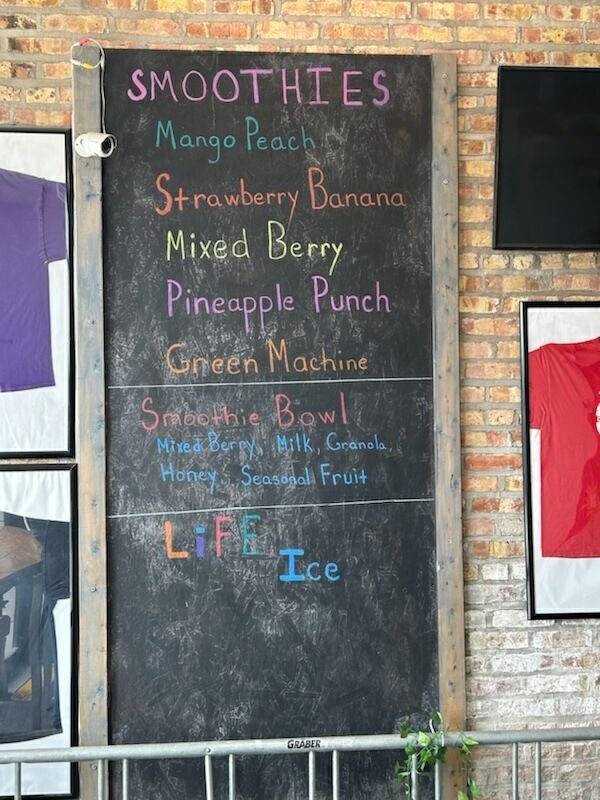 SMOOTHIES
Mango Peach
Strawberry Banana
Mixed Berry
Pineapple Punch
Green Machine
Smoothie Bowl
Mixed Berry, Milk, Granola,
Honey, Seasonal Fruit
LiFE
Ice
GRABER